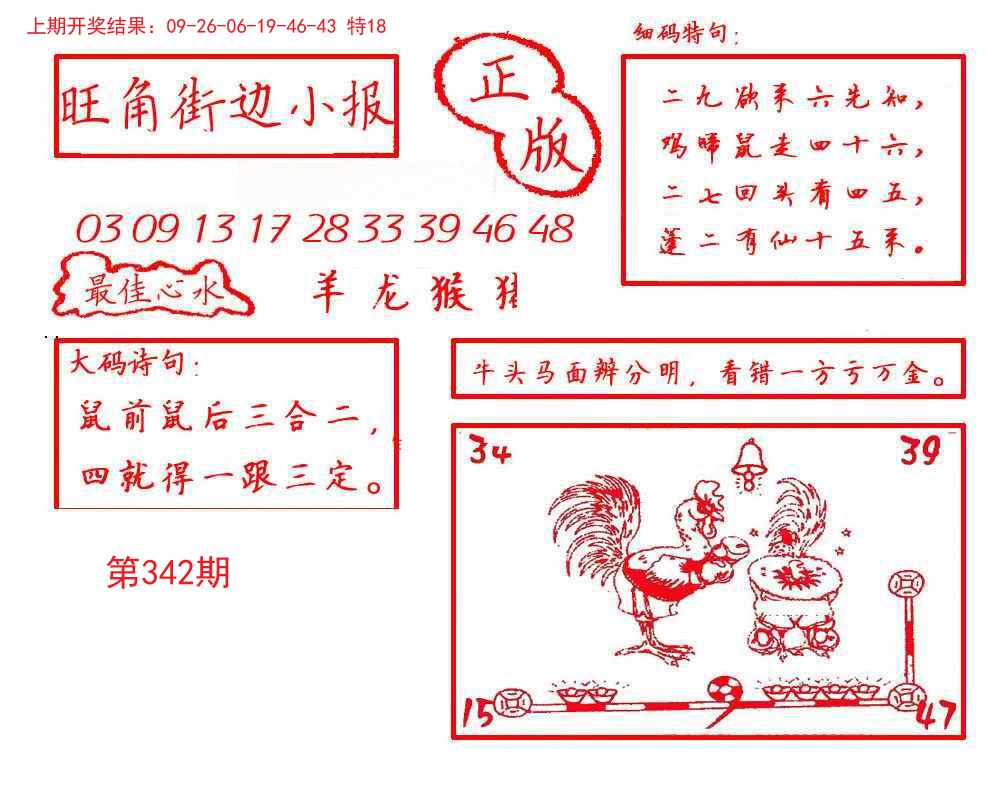 上期开奖结果：09-26-06-19-46-43 特18
旺角街边小报
正版
细码特句：
二九欲来六先知，
鸡啼鼠走四十六，
二七回头看四五，
蓬二有仙十五来。
03 09 13 17 28 33 39 46 48
最佳心水
羊 龙 猴 猪
大码诗句：
鼠前鼠后三合二，
四就得一跟三定。
牛头马面辨分明，看错一方亏万金。
34
39
第342期
15
47